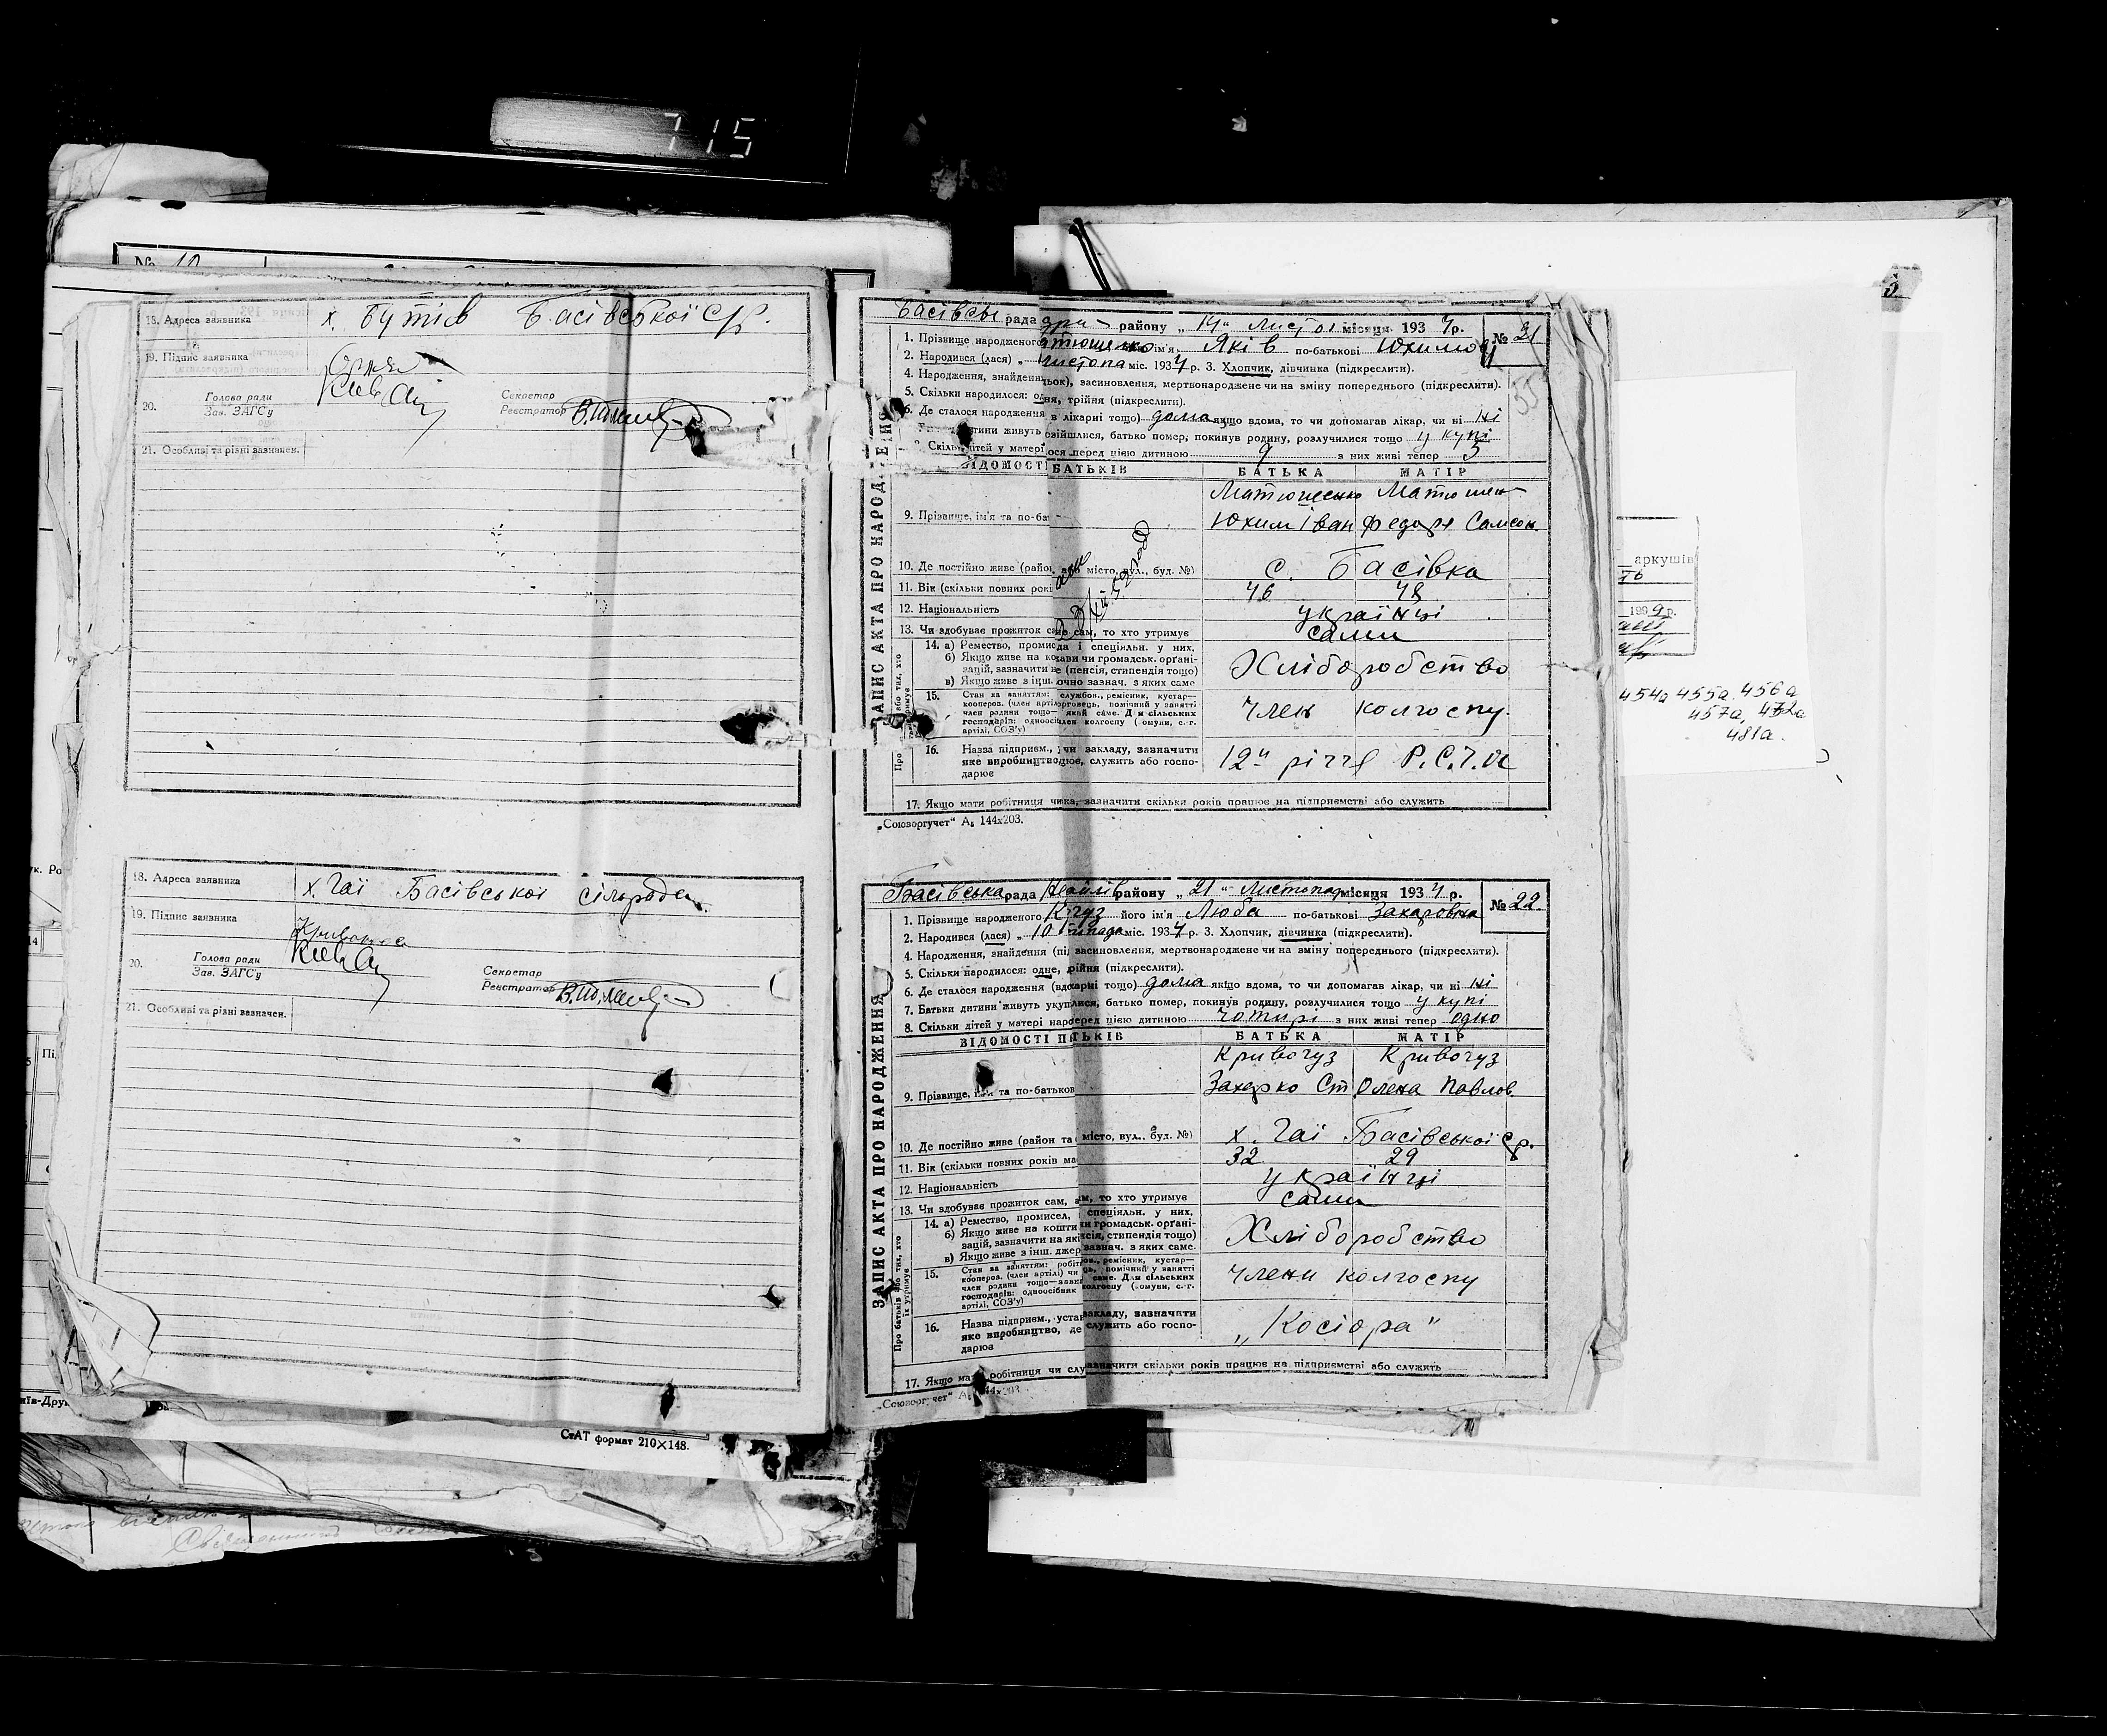 715
№ 10
18. Адреса заявника х. Бутів Басівської с/р.
19. Підпис заявника
20. Голова ради
Зав. ЗАГС'у
Секретар
Реєстратор
21. Особливі та різні зазначен.
18. Адреса заявника х. Гаї Басівської сільради.
19. Підпис заявника
20. Голова ради
Зав. ЗАГС'у
Секретар
Реєстратор
21. Особливі та різні зазначен.
СтАТ формат 210×148.
ЗАПИС АКТА ПРО НАРОД
рада району „14“ Лист місяця 1934 р. № 21
1. Прізвище народженого ім'я Яків по-батькові Юхимов
2. Народився (лася) „ листопа міс. 1934 р. 3. Хлопчик, дівчинка (підкреслити).
4. Народження, знайденн ьок), засиновлення, мертвонароджене чи на зміну попереднього (підкреслити).
5. Скільки народилося: од ня, трійня (підкреслити).
6. Де сталося народження в лікарні тощо) дома якщо вдома, то чи допомагав лікар, чи ні ні
тини живуть озійшлися, батько помер, покинув родину, розлучилися тощо у купі
8. Скільк дітей у матері ося перед цією дитиною 9 з них живі тепер 5
ВІДОМОСТІ БАТЬКІВ БАТЬКА МАТІР
Матюшенко Матюшен
9. Прізвище, ім'я та по-ба Юхим Іван Федора Самсон.
10. Де постійно живе (район або місто, вул., буд. №) с. Басівка
11. Вік (скільки повних рокі 46 48
12. Національність українці
13. Чи здобуває прожиток сам, то хто утримує сами
14. а) Ремество, промисе да і спеціяльн. у них.
б) Якщо живе на ко ави чи громадськ. орґані-
зацій, зазначити н е (пенсія, стипендія тощо)
в) Якщо живе з інш. очно зазнач. з яких саме
Хліборобство
15. Стан за заняттям: службов., ремісник, кустар—
член родини тощо— який саме. Для сільських
артілі, СОЗ'у)
Член колгоспу.
16. Назва підприєм., чи закладу, зазначити
яке виробництво цює, служить або госпо-
дарює
12ч річчя Р.С.Ч.А
17. Якщо мати робітниця чи ка, зазначити скільки років працює на підприємстві або служить
„Союзоргучет“ А₅ 144x203.
ЗАПИС АКТА ПРО НАРОДЖЕННЯ
Басівська рада району „21“ Листопад місяця 1934 р. № 22.
1. Прізвище народженого його ім'я Люба по-батькові Захаровна
2. Народився (лася) „10 пада міс. 1934 р. 3. Хлопчик, дівчинка (підкреслити).
4. Народження, знайдення (пі засиновлення, мертвонароджене чи на зміну попереднього (підкреслити).
5. Скільки народилося: одне, рійня (підкреслити).
6. Де сталося народження (вдо карні тощо) дома якщо вдома, то чи допомагав лікар, чи ні ні
7. Батьки дитини живуть укуп лися, батько помер, покинув родину, розлучилися тощо у купі
8. Скільки дітей у матері наро еред цією дитиною чотирі з них живі тепер одно
ВІДОМОСТІ П ТЬКІВ БАТЬКА МАТІР
Кривогуз Кривогуз
9. Прізвище, ім'я та по-батьков Захарко Ст Олена Павлов.
10. Де постійно живе (район та місто, вул., буд. №) х. Гаї Басівської с/р.
11. Вік (скільки повних років ма 32 29
12. Національність українці
13. Чи здобуває прожиток сам, а м, то хто утримує сами
14. а) Ремество, промисел, спеціяльн. у них.
б) Якщо живе на кошти чи громадськ. орґані-
зацій, зазначити на які нсія, стипендія тощо)
в) Якщо живе з інш. джер зазнач. з яких саме.
Хліборобство
15. Стан за заняттям: робіт ов., ремісник, кустар—
кооперов. (член артілі) чи помічний у занятті
член родини тощо— саме. Для сільських
господарів: одноосібник колгоспу (комуни, с.-г.
артілі, СОЗ'у)
члени колгоспу
16. Назва підприєм., уста закладу, зазначити
яке виробництво, де служить або госпо-
дарює
„Косіора“
17. Якщо ма робітниця чи слу зазначити скільки років працює на підприємстві або служить
аркушів
199 р.
454а 455а 456а
457а, 472а
481а.